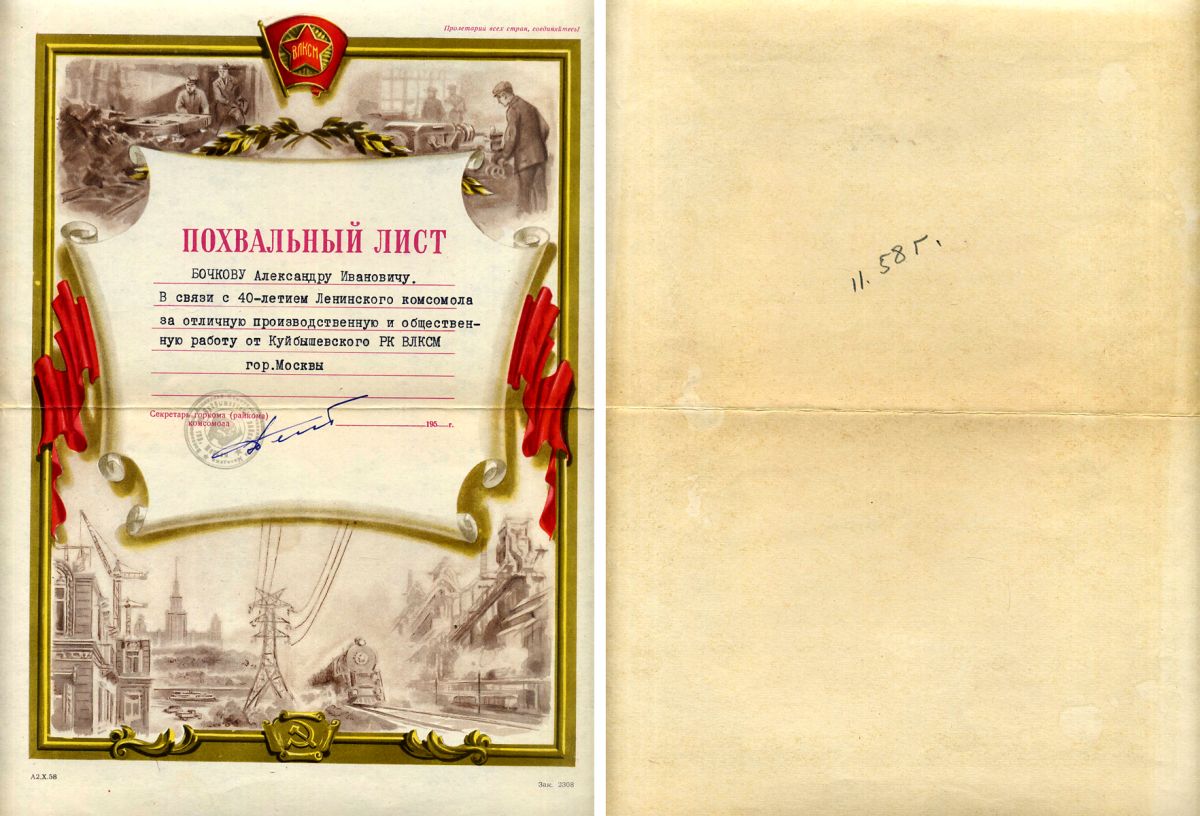 Пролетарии всех стран, соединяйтесь!
ВЛКСМ
ПОХВАЛЬНЫЙ ЛИСТ
БОЧКОВУ Александру Ивановичу.
В связи с 40-летием Ленинского комсомола
за отличную производственную и обществен-
ную работу от Куйбышевского РК ВЛКСМ
гор.Москвы
Секретарь горкома (райкома)
комсомола
195 г.
А2.X.58
Зак. 2308
11. 58 г.